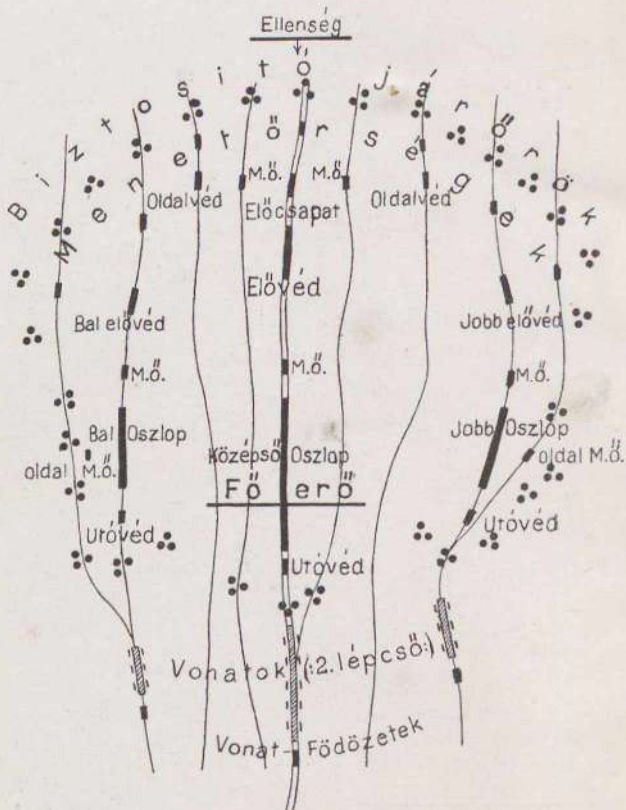 Ellenség
Biztositó járőrök
Menetőrségek
Oldalvéd M.Ő. M.Ő. Oldalvéd
Előcsapat
Elővéd
Bal elővéd Jobb elővéd
M.Ő. M.Ő. M.Ő.
Bal Oszlop Jobb Oszlop
Középső Oszlop
oldal M.Ő. oldal M.Ő.
Fő erő
Utóvéd Utóvéd
Utóvéd
Vonatok (:2.lépcső:)
Vonat-Födözetek